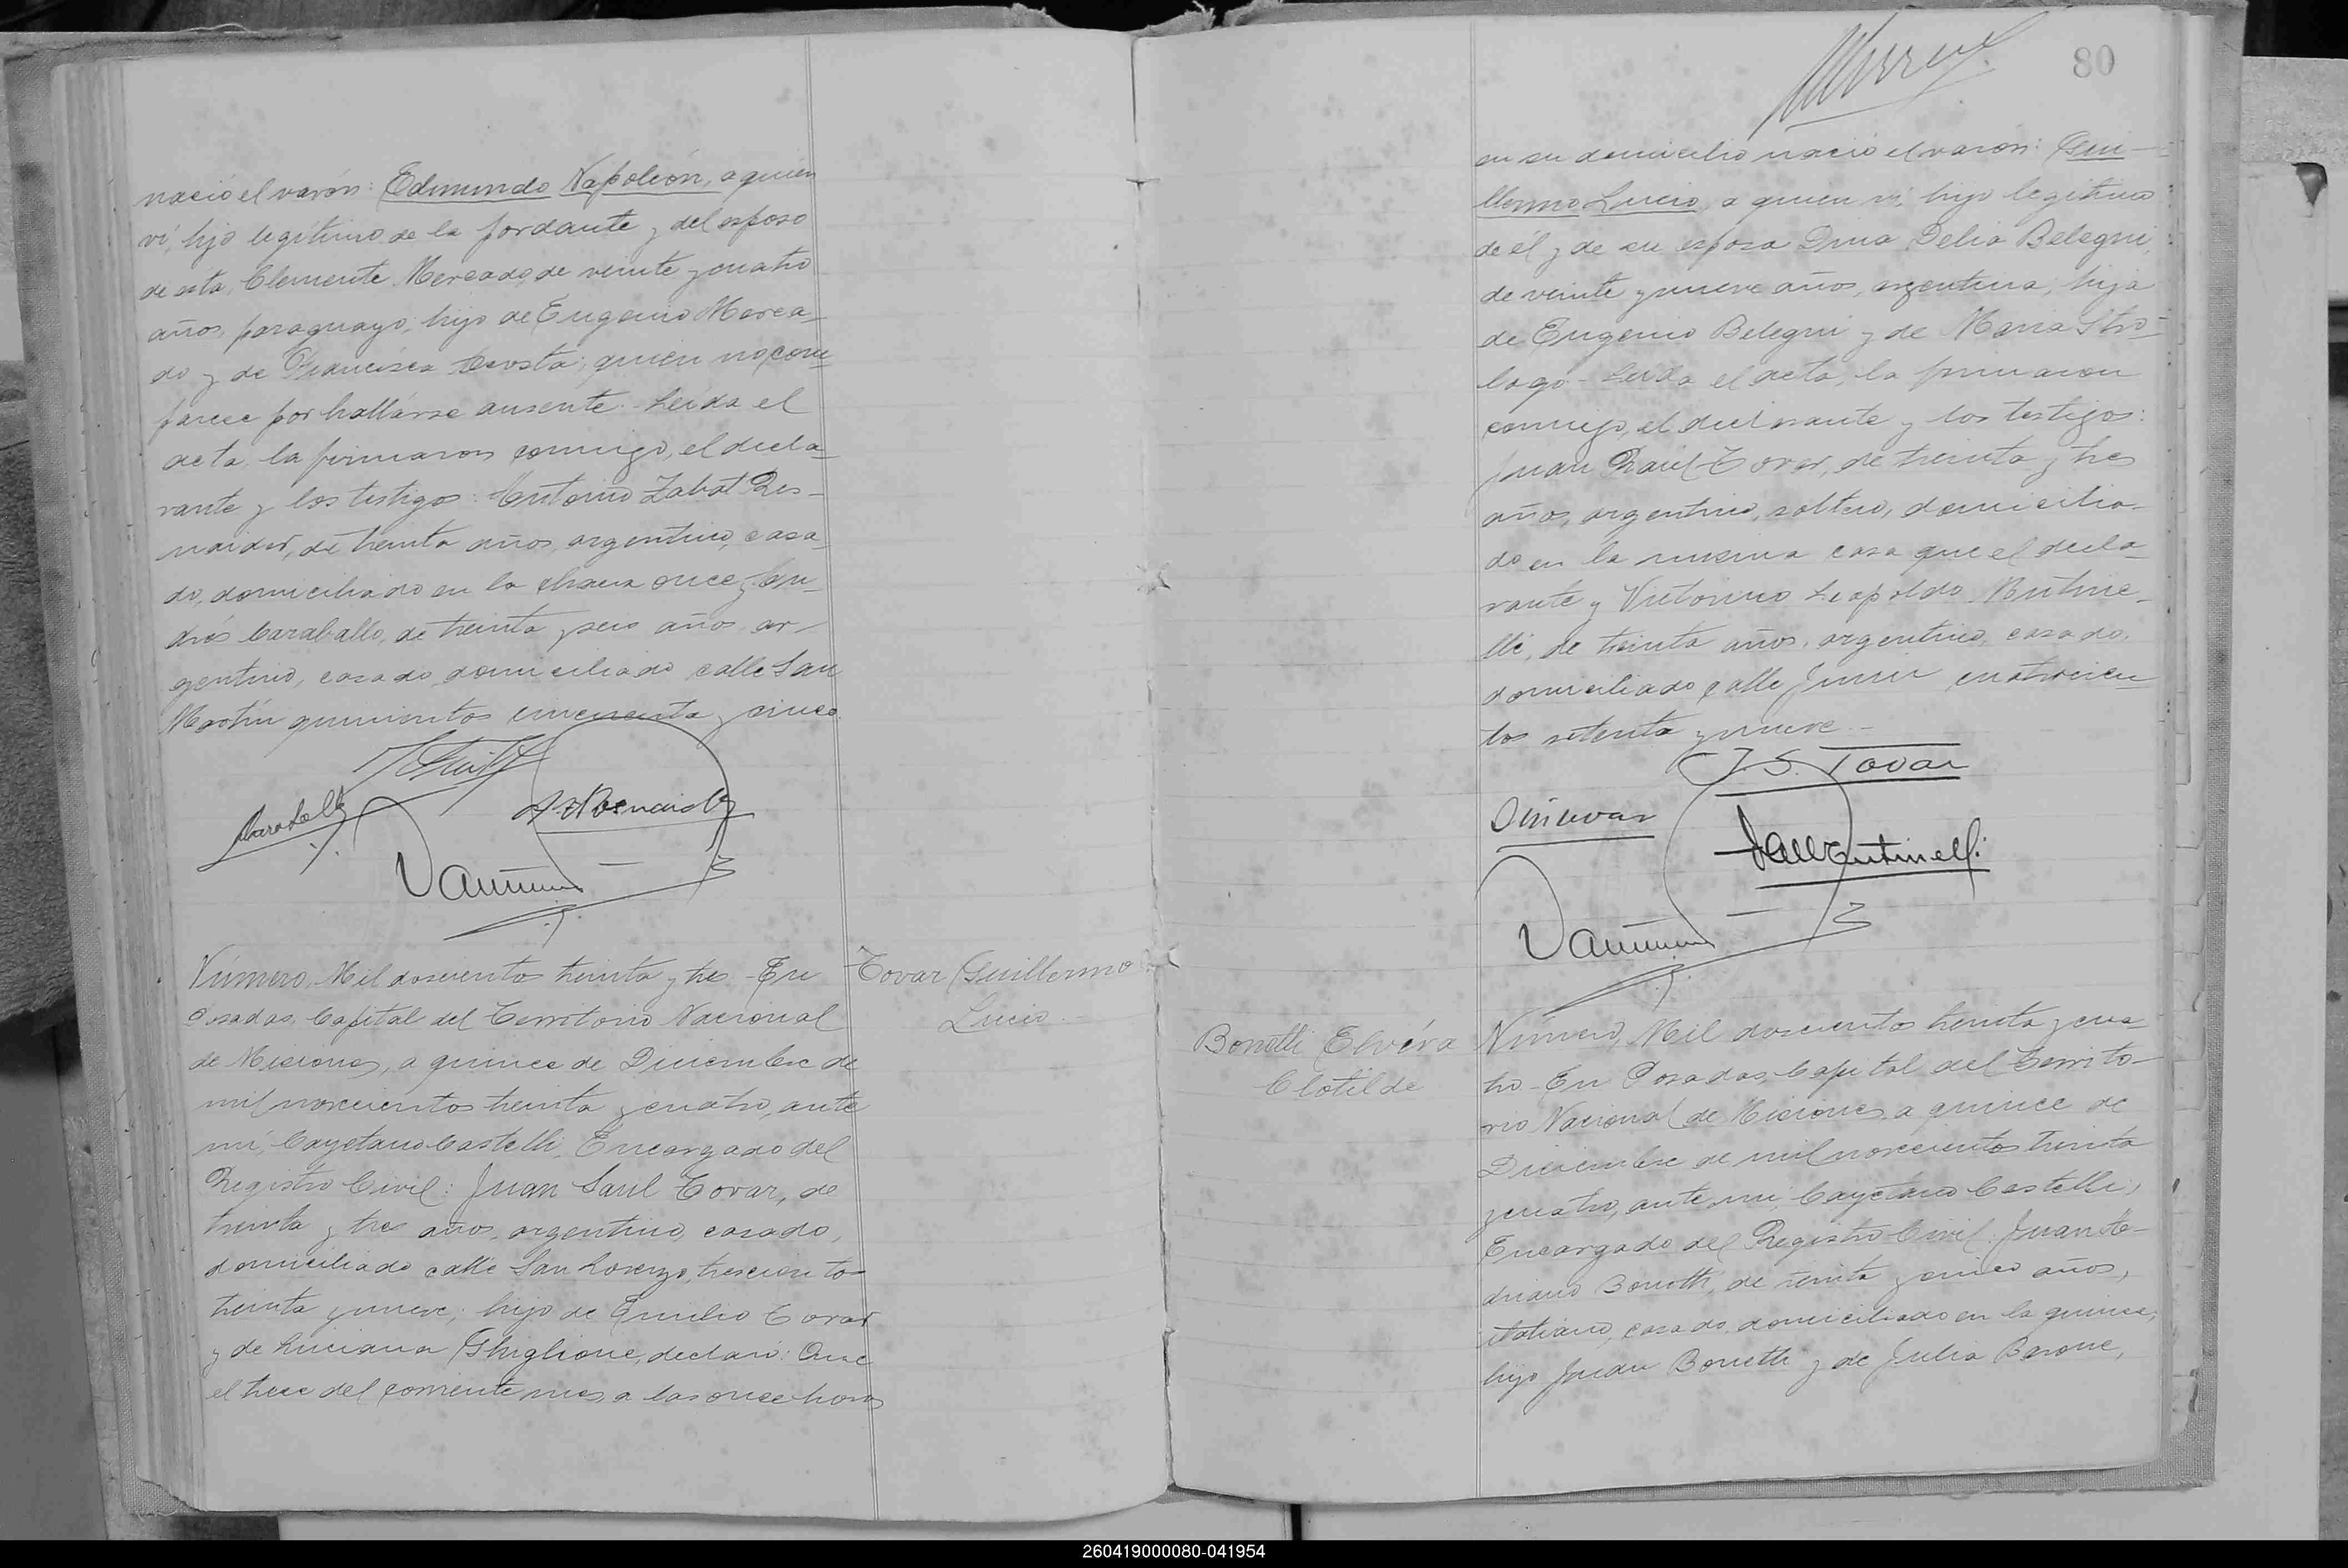 nació el varón: Edmundo Napoleón, a quien
ví, hijo legítimo de la fordante y del esposo
de esta, Clemente Mercado, de veinte y cuatro
años, paraguayo, hijo de Eugenio Merca-
do y de Francisca Acosta; quien no com-
parece por hallarse ausente. Leída el
acta, la firmaron conmigo, el decla-
rante y los testigos: Antonio Zabat Res-
naider, de treinta años, argentino, casa-
do, domiciliado en la chacra once y An-
drés Caraballo, de treinta y seis años, ar-
gentino, casado, domiciliado calle San
Martín quinientos cincuenta y cinco.
Número, Mil doscientos treinta y tres. En
Posadas, Capital del Territorio Nacional
de Misiones, a quince de Diciembre de
mil novecientos treinta y cuatro, ante
mí, Cayetano Castelli, Encargado del
Registro Civil: Juan Saul Tovar, de
treinta y tres años, argentino, casado,
domiciliado calle San Lorenzo, trescientos
treinta y nueve; hijo de Emilio Tovar
y de Luciana Ghiglione, declaró: Que
el trece del corriente mes, a las once horas
Tovar Guillermo
Lucio.-
80
en su domicilio nació el varón: Gui-
llermo Lucio, a quien ví, hijo legítimo
de él y de su esposa Dina Delia Belegni,
de veinte y nueve años, argentina, hija
de Eugenio Belegni y de Maria Stro-
lago- Leída el acta, la firmaron
conmigo, el declarante y los testigos:
Juan Raúl Tovar, de treinta y tres
años, argentino, soltero, domicilia-
do en la misma casa que el decla-
rante y Victorino Leopoldo Rutine-
lli, de treinta años, argentino, casado,
domiciliado calle Junin cuatrocien-
tos setenta y nueve.-
J. S. Tovar
Bonetti Elvira
Clotilde
Número, Mil doscientos treinta y cua-
tro- En Posadas, Capital del Territo-
rio Nacional de Misiones, a quince de
Diciembre de mil novecientos treinta
y cuatro, ante mí, Cayetano Castelli,
Encargado del Registro Civil: Juan A-
driano Bonetti, de treinta y cinco años,
italiano, casado, domiciliado en la quince,
hijo Juan Bonetti y de Julia Barone,
260419000080-041954